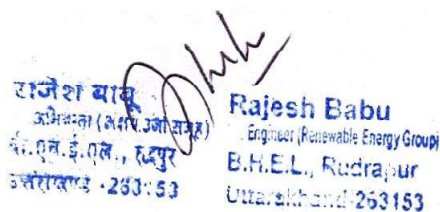 राजेश बाबू
अभियन्ता (अक्षय ऊर्जा समूह)
बी.एच.ई.एल., रुद्रपुर
उत्तराखण्ड -263153
Rajesh Babu
Engineer (Renewable Energy Group)
B.H.E.L., Rudrapur
Uttarakhand-263153